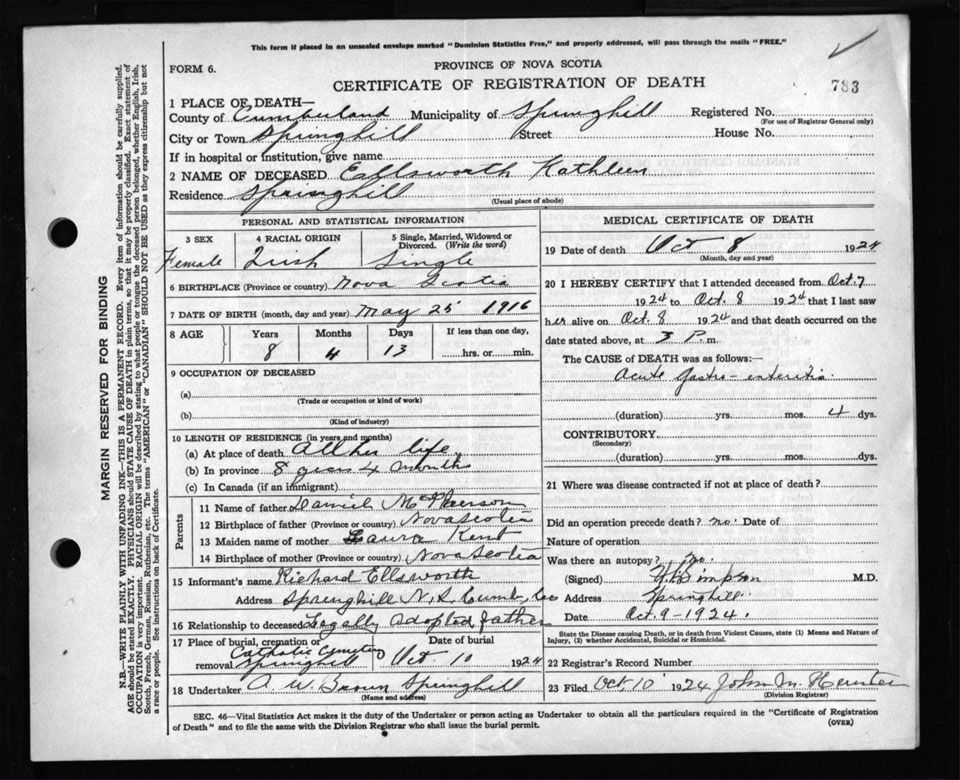 This form if placed in an unsealed envelope marked "Dominion Statistics Free," and properly addressed, will pass through the mails "FREE."
FORM 6.
PROVINCE OF NOVA SCOTIA
CERTIFICATE OF REGISTRATION OF DEATH
783
1 PLACE OF DEATH—
County of Cumberland Municipality of Springhill Registered No.
(For use of Registrar General only)
City or Town Springhill Street House No.
If in hospital or institution, give name
2 NAME OF DECEASED Ellsworth Kathleen
Residence Springhill
(Usual place of abode)
PERSONAL AND STATISTICAL INFORMATION
3 SEX 4 RACIAL ORIGIN 5 Single, Married, Widowed or Divorced. (Write the word)
Female Irish Single
6 BIRTHPLACE (Province or country) Nova Scotia
7 DATE OF BIRTH (month, day and year) May 25 1916
8 AGE Years Months Days If less than one day,
8 4 13 hrs. or min.
9 OCCUPATION OF DECEASED
(a)
(Trade or occupation or kind of work)
(b)
(Kind of industry)
10 LENGTH OF RESIDENCE (in years and months)
(a) At place of death All her life
(b) In province 8 years 4 months
(c) In Canada (if an immigrant)
Parents
11 Name of father Daniel McPherson
12 Birthplace of father (Province or country) Nova Scotia
13 Maiden name of mother Laura Kent
14 Birthplace of mother (Province or country) Nova Scotia
15 Informant's name Richard Ellsworth
Address Springhill N.S. Cumb. Co
16 Relationship to deceased Legally adopted father
17 Place of burial, cremation or removal Catholic Cemetery Springhill
Date of burial Oct 10 1924
18 Undertaker A. W. Brown Springhill
(Name and address)
MEDICAL CERTIFICATE OF DEATH
19 Date of death Oct 8 1924
(Month, day and year)
20 I HEREBY CERTIFY that I attended deceased from Oct. 7
1924 to Oct. 8 1924 that I last saw
her alive on Oct. 8 1924 and that death occurred on the
date stated above, at 3 P. m.
The CAUSE of DEATH was as follows:—
Acute gastro-enteritis.
(duration) yrs. mos. 4 dys.
CONTRIBUTORY
(Secondary)
(duration) yrs. mos. dys.
21 Where was disease contracted if not at place of death?
Did an operation precede death? no. Date of
Nature of operation
Was there an autopsy? no.
(Signed) Simpson M.D.
Address Springhill.
Date Oct. 9 - 1924.
State the Disease causing Death, or in death from Violent Causes, state (1) Means and Nature of
Injury, (2) whether Accidental, Suicidal or Homicidal.
22 Registrar's Record Number
23 Filed Oct 10 1924 John M. Hunter
(Division Registrar)
SEC. 46—Vital Statistics Act makes it the duty of the Undertaker or person acting as Undertaker to obtain all the particulars required in the "Certificate of Registration
of Death" and to file the same with the Division Registrar who shall issue the burial permit.
(OVER)
MARGIN RESERVED FOR BINDING
N.B.—WRITE PLAINLY WITH UNFADING INK—THIS IS A PERMANENT RECORD. Every item of information should be carefully supplied.
AGE should be stated EXACTLY. PHYSICIANS should STATE CAUSE OF DEATH in plain terms, so that it may be properly classified. Exact statement of
OCCUPATION is very important. RACIAL ORIGIN will be described by stating to what people or tongue the deceased person belonged, whether English, Irish,
Scotch, French, German, Russian, Ruthenian, etc. The terms "AMERICAN" or "CANADIAN" SHOULD NOT BE USED as they express citizenship but not
a race or people. See instructions on back of Certificate.